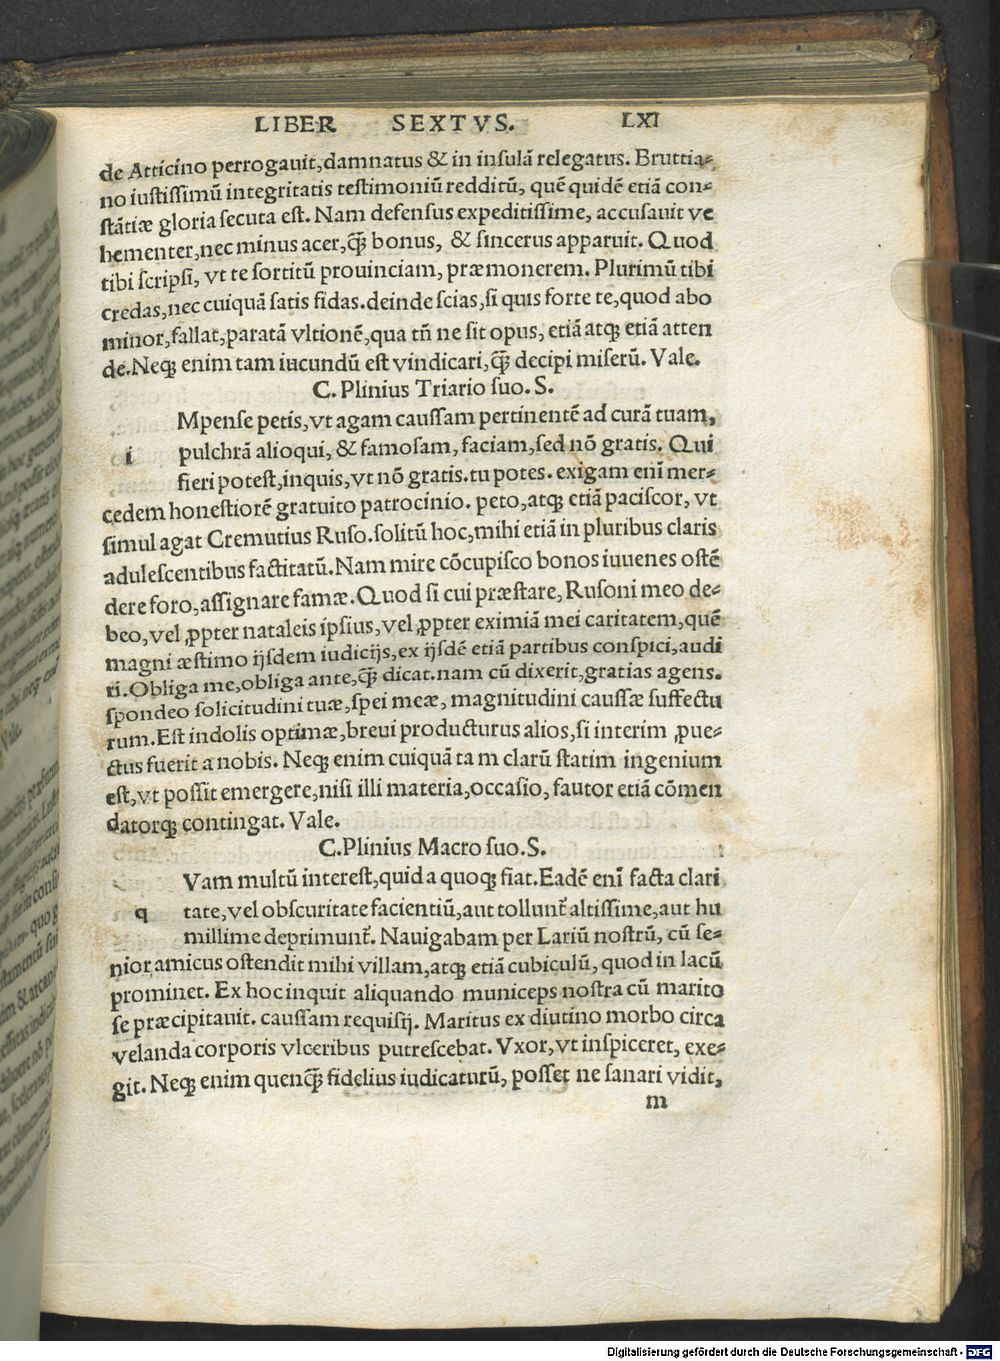 LIBER SEXTVS. LXI
de Atticino perrogauit,damnatus & in insulā relegatus. Bruttia⸗
no iustissimū integritatis testimoniū redditū, quē quidē etiā con⸗
stātiæ gloria secuta est. Nam defensus expeditissime, accusauit ve
hementer,nec minus acer,q̃ bonus, & sincerus apparuit. Quod
tibi scripsi, vt te sortitū prouinciam, præmonerem. Plurimū tibi
credas,nec cuiquā satis fidas.deinde scias,si quis forte te,quod abo
minor,fallat,paratā vltionē,qua tñ ne sit opus, etiā atqꝫ etiā atten
de.Neqꝫ enim tam iucundū est vindicari,q̃ decipi miserū. Vale.
C. Plinius Triario suo. S.
Mpense petis,vt agam caussam pertinentē ad curā tuam,
i pulchrā alioqui, & famosam, faciam,sed nō gratis. Qui
fieri potest,inquis,vt nō gratis.tu potes. exigam enī mer⸗
cedem honestiorē gratuito patrocinio. peto,atqꝫ etiā paciscor, vt
simul agat Cremutius Ruso.solitū hoc,mihi etiā in pluribus claris
adulescentibus factitatū.Nam mire cōcupisco bonos iuuenes ostē
dere foro,assignare famæ.Quod si cui præstare, Rusoni meo de⸗
beo,vel ꝓpter nataleis ipsius,vel ꝓpter eximiā mei caritatem,quē
magni æstimo ijsdem iudicijs,ex ijsdē etiā partibus conspici,audi
ri.Obliga me,obliga ante,q̃ dicat.nam cū dixerit,gratias agens.
spondeo solicitudini tuæ,spei meæ, magnitudini caussæ suffectu
rum.Est indolis optimæ,breui producturus alios,si interim ꝓue⸗
ctus fuerit a nobis. Neqꝫ enim cuiquā ta m clarū statim ingenium
est,vt possit emergere,nisi illi materia,occasio, fautor etiā cōmen
datorqꝫ contingat. Vale.
C.Plinius Macro suo.S.
Vam multū interest,quid a quoqꝫ fiat.Eadē enī facta clari
q tate,vel obscuritate facientiū,aut tollunt̃ altissime,aut hu
millime deprimunt̃. Nauigabam per Lariū nostrū, cū se⸗
nior amicus ostendit mihi villam,atqꝫ etiā cubiculū, quod in lacū
prominet. Ex hoc inquit aliquando municeps nostra cū marito
se præcipitauit. caussam requisij. Maritus ex diutino morbo circa
velanda corporis vlceribus putrescebat. Vxor,vt inspiceret, exe⸗
git. Neqꝫ enim quenq̃ fidelius iudicaturū, posset ne sanari vidit,
m
Digitalisierung gefördert durch die Deutsche Forschungsgemeinschaft - DFG